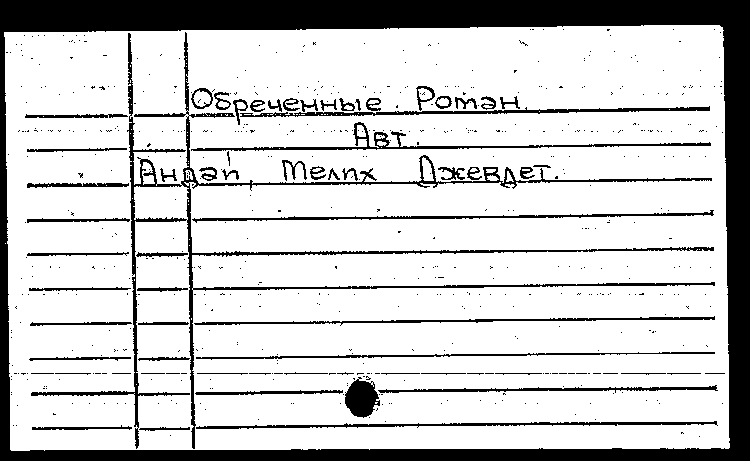 Обреченные. Роман.
Авт.
Андай, Мелих Джевдет.